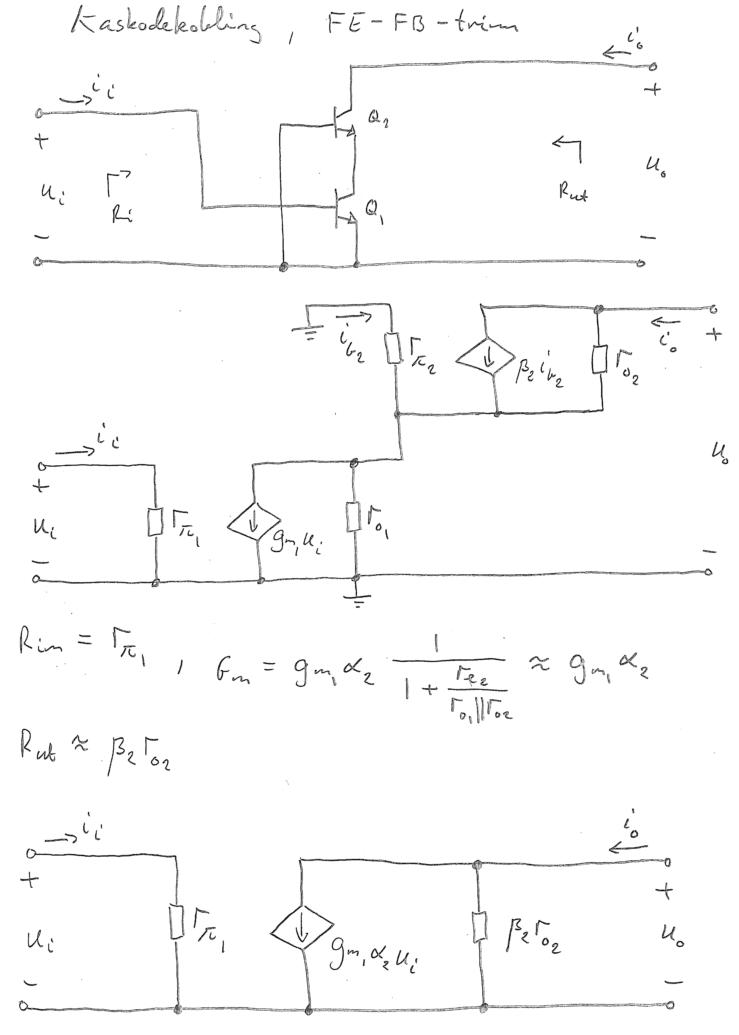 Kaskodekobling, FE-FB-trinn
i_o
i_i
+
+
Q_2
u_i
R_i
R_ut
u_o
Q_1
−
−
i_{b_2}
r_{π_2}
β_2 i_{b_2}
r_{o_2}
i_o
+
i_i
+
u_i
r_{π_1}
g_{m_1} u_i
r_{o_1}
u_o
−
−
R_inn = r_{π_1}, G_m = g_{m_1} α_2 \frac{1}{1 + \frac{r_{e_2}}{r_{o_1}||r_{o_2}}} ≈ g_{m_1} α_2
R_ut ≈ β_2 r_{o_2}
i_i
i_o
+
+
u_i
r_{π_1}
g_{m_1} α_2 u_i
β_2 r_{o_2}
u_o
−
−